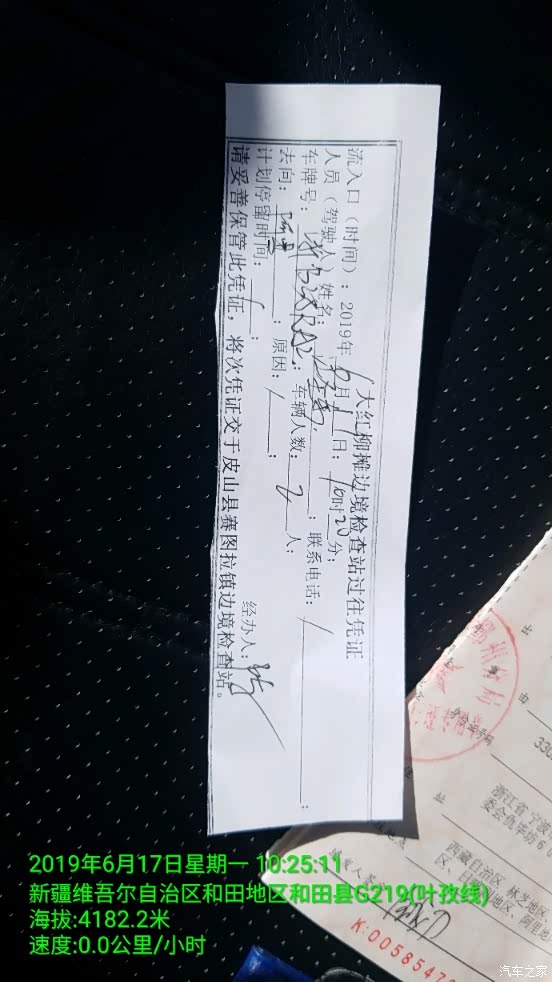 大红柳摊边境检查站过往凭证
流入口（时间）：2019年6月17日：10时20分；
人员（驾驶人）姓名： ；联系电话：/ ；
车牌号： ；车辆人数：2人；
去向： ；原因：/ ；
计划停留时间：/ ； 经办人：
请妥善保管此凭证，将次凭证交于皮山县赛图拉镇边境检查站。
330
浙江省宁波
西藏自治区 林芝地区、
K:0058547
2019年6月17日星期一 10:25:11
新疆维吾尔自治区和田地区和田县G219(叶孜线)
海拔:4182.2米
速度:0.0公里/小时
汽车之家